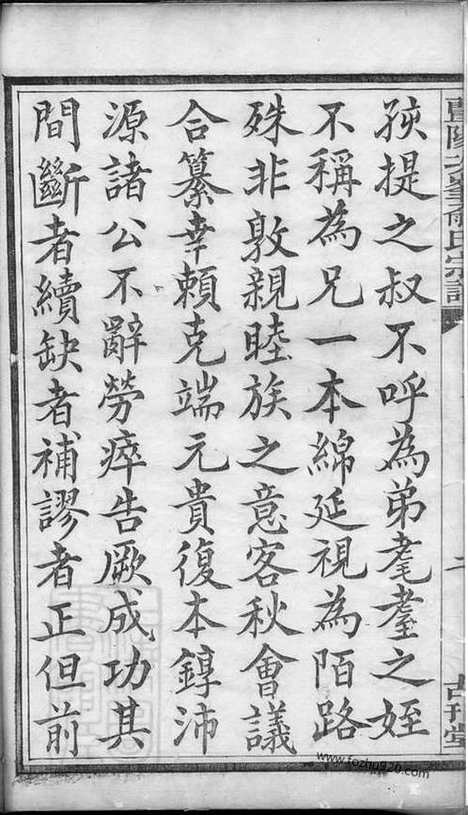 孩提之叔不呼為弟耄耋之姪
不稱為兄一本綿延視為陌路
殊非敦親睦族之意客秋會議
合纂幸賴克端元貴復本錞沛
源諸公不辭勞瘁告厥成功其
間斷者續缺者補謬者正但前
氏宗譜
古刊堂
www.fozhu920.com